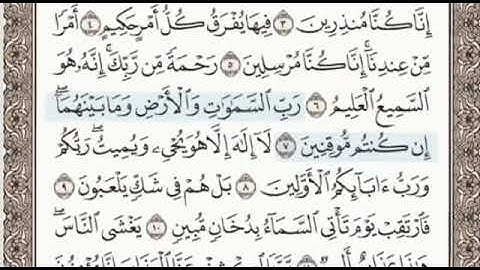 إِنَّا كُنَّا مُنذِرِينَ ٣ فِيهَا يُفْرَقُ كُلُّ أَمْرٍ حَكِيمٍ ٤ أَمْرًا
مِّنْ عِندِنَا ۚ إِنَّا كُنَّا مُرْسِلِينَ ٥ رَحْمَةً مِّن رَّبِّكَ ۚ إِنَّهُ هُوَ
السَّمِيعُ الْعَلِيمُ ٦ رَبِّ السَّمَٰوَٰتِ وَالْأَرْضِ وَمَا بَيْنَهُمَا ۖ
إِن كُنتُم مُّوقِنِينَ ٧ لَا إِلَٰهَ إِلَّا هُوَ يُحْيِۦ وَيُمِيتُ ۖ رَبُّكُمْ
وَرَبُّ ءَابَائِكُمُ الْأَوَّلِينَ ٨ بَلْ هُمْ فِي شَكٍّ يَلْعَبُونَ ٩
فَارْتَقِبْ يَوْمَ تَأْتِي السَّمَاءُ بِدُخَانٍ مُّبِينٍ ١٠ يَغْشَى النَّاسَ ۖ